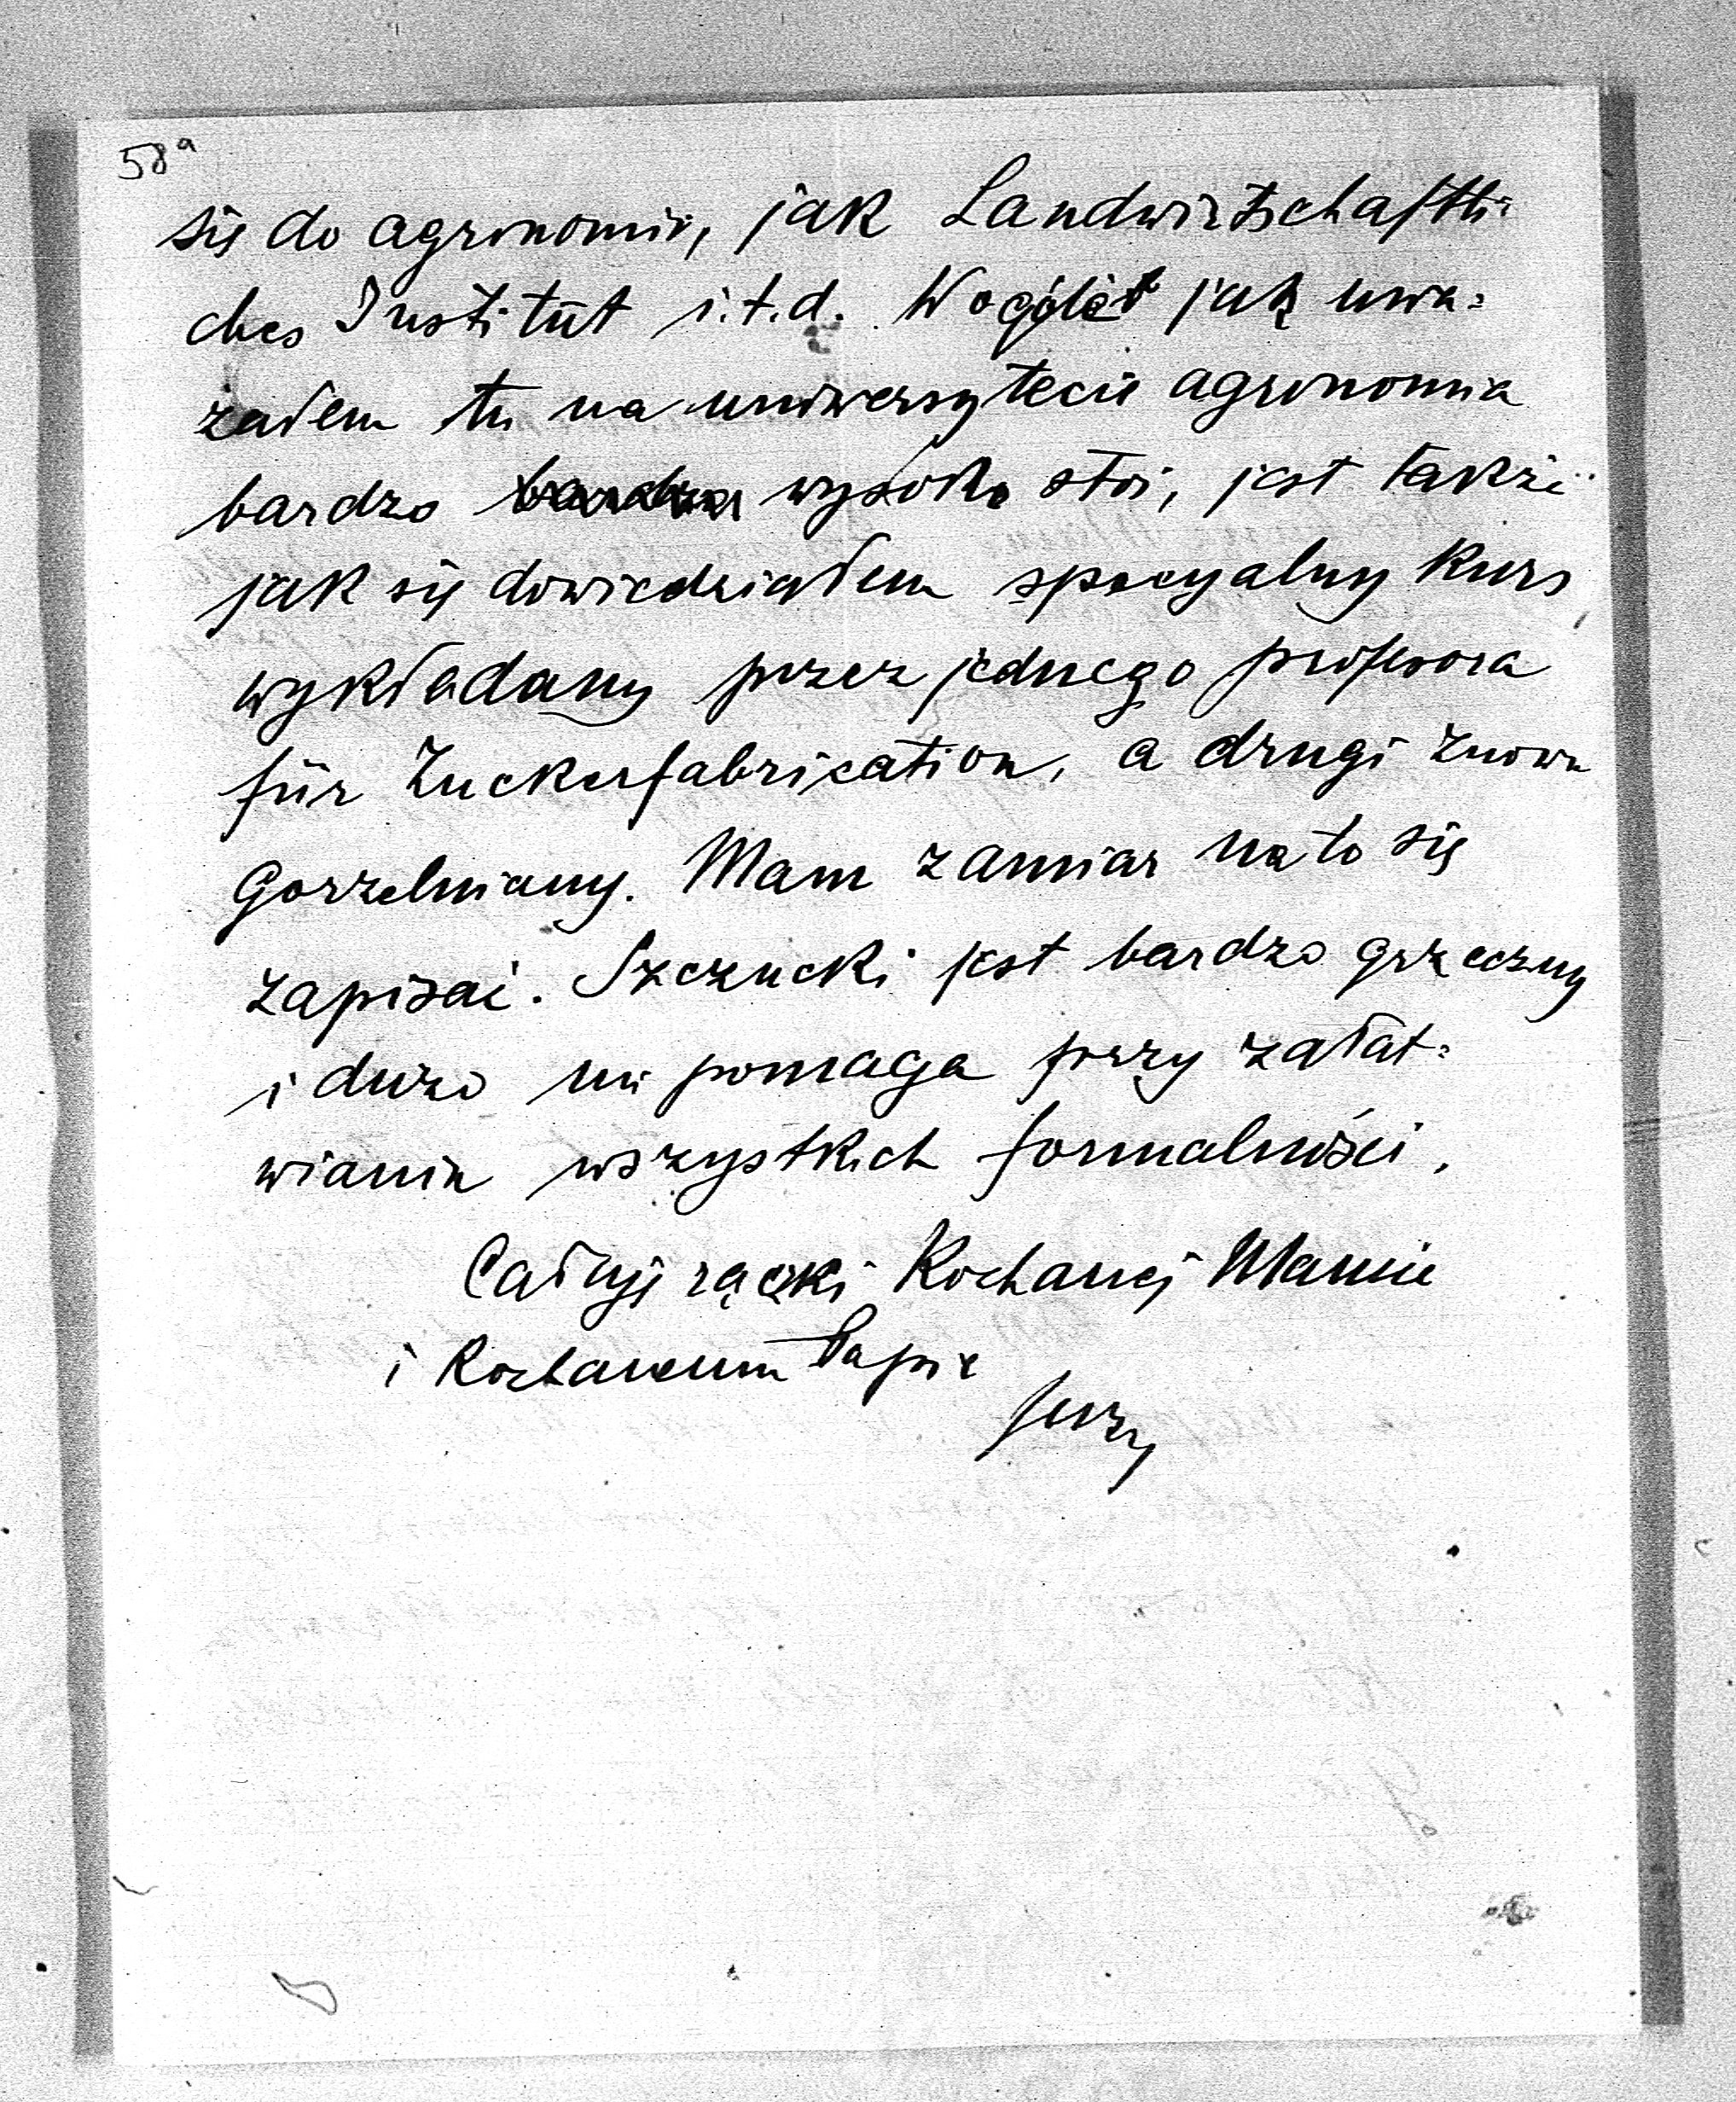 58a
się do agronomii, jak Landwirtschaftli-
ches Institut i.t.d. Wogóle jak uwa-
żałem tu na uniwersytecie agronomia
bardzo wysoko stoi, jest także
jak się dowiedziałem specyalny kurs,
wykładany przez jednego profesora
für Zuckerfabrication, a drugi znowu
Gorzelniany. Mam zamiar na to się
zapisać. Szczucki jest bardzo grzeczny
i dużo mi pomaga przy załat-
wianiu wszystkich formalności.
Całuję rączki Kochanej Mamie
i Kochanemu Papie
Jerzy